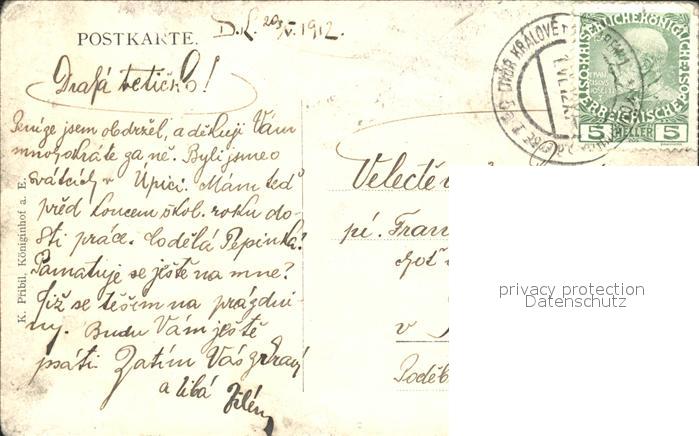 POSTKARTE.
D.K. 29/V. 1912.
Drahá tetičko!
Peníze jsem obdržel, a děkuji Vám
mnohokráte za ně. Byli jsme o
svátcích v Úpici. Mám teď
před koncem škol. roku do-
sti práce. Co dělá Pepinka?
Pamatuje se ještě na mne?
Již se těším na prázdni-
ny. Budu Vám ještě
psáti. Zatím Vás zdraví
a líbá
K. Přibil, Königinhof a. E.
DVŮR KRÁLOVÉ
KAISERLICHE KÖNIGLICHE
ÖSTERREICHISCHE
5 HELLER 5
Velectě
pí. Fran
v
Poděb
privacy protection
Datenschutz